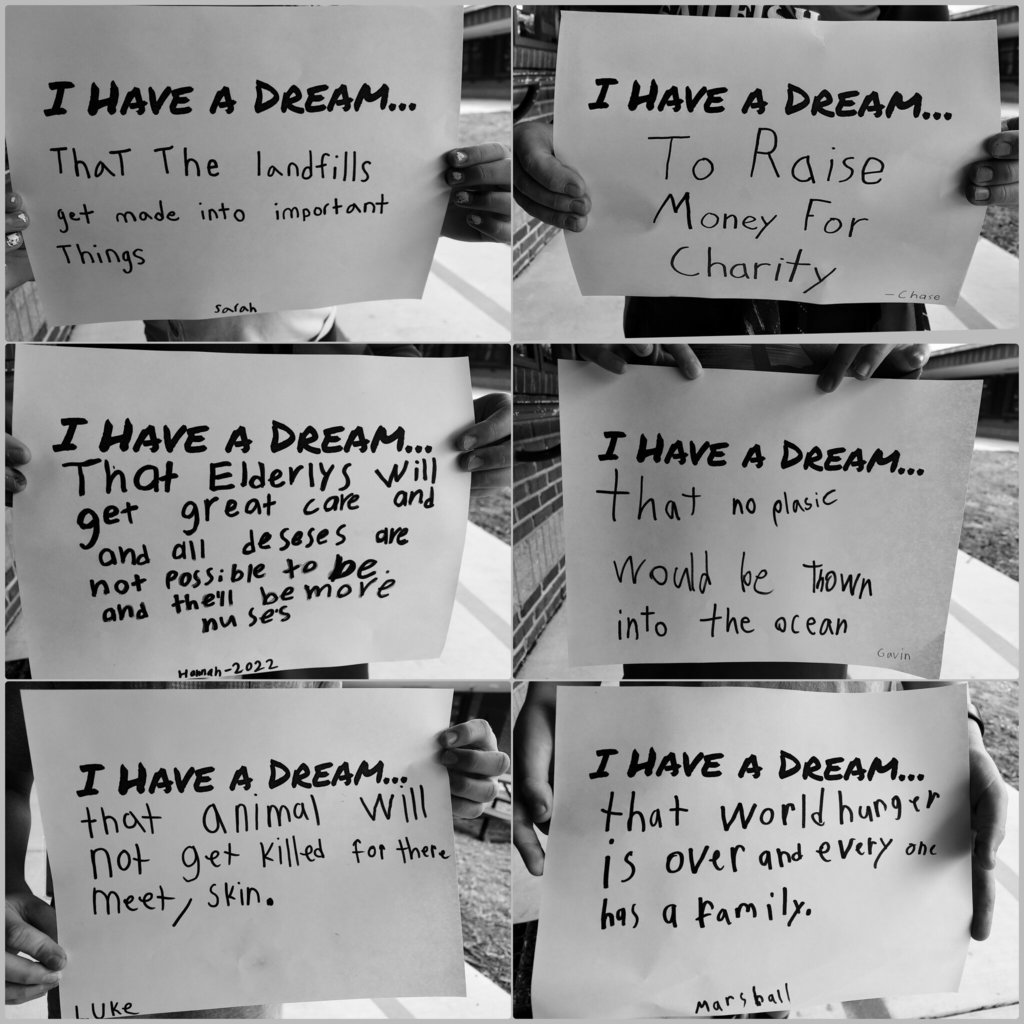 I HAVE A DREAM...
ThaT The landfills
get made into important
Things
Sarah
I HAVE A DREAM...
To Raise
Money For
Charity
-Chase
I HAVE A DREAM...
That Elderlys will
get great care and
and all deseses are
not possible to be.
and the'll be more
nuses
Hannah-2022
I HAVE A DREAM...
that no plasic
would be thown
into the ocean
Gavin
I HAVE A DREAM...
that animal will
not get killed for there
meet, skin.
LUKe
I HAVE A DREAM...
that world hunger
is over and every one
has a family.
Marshall